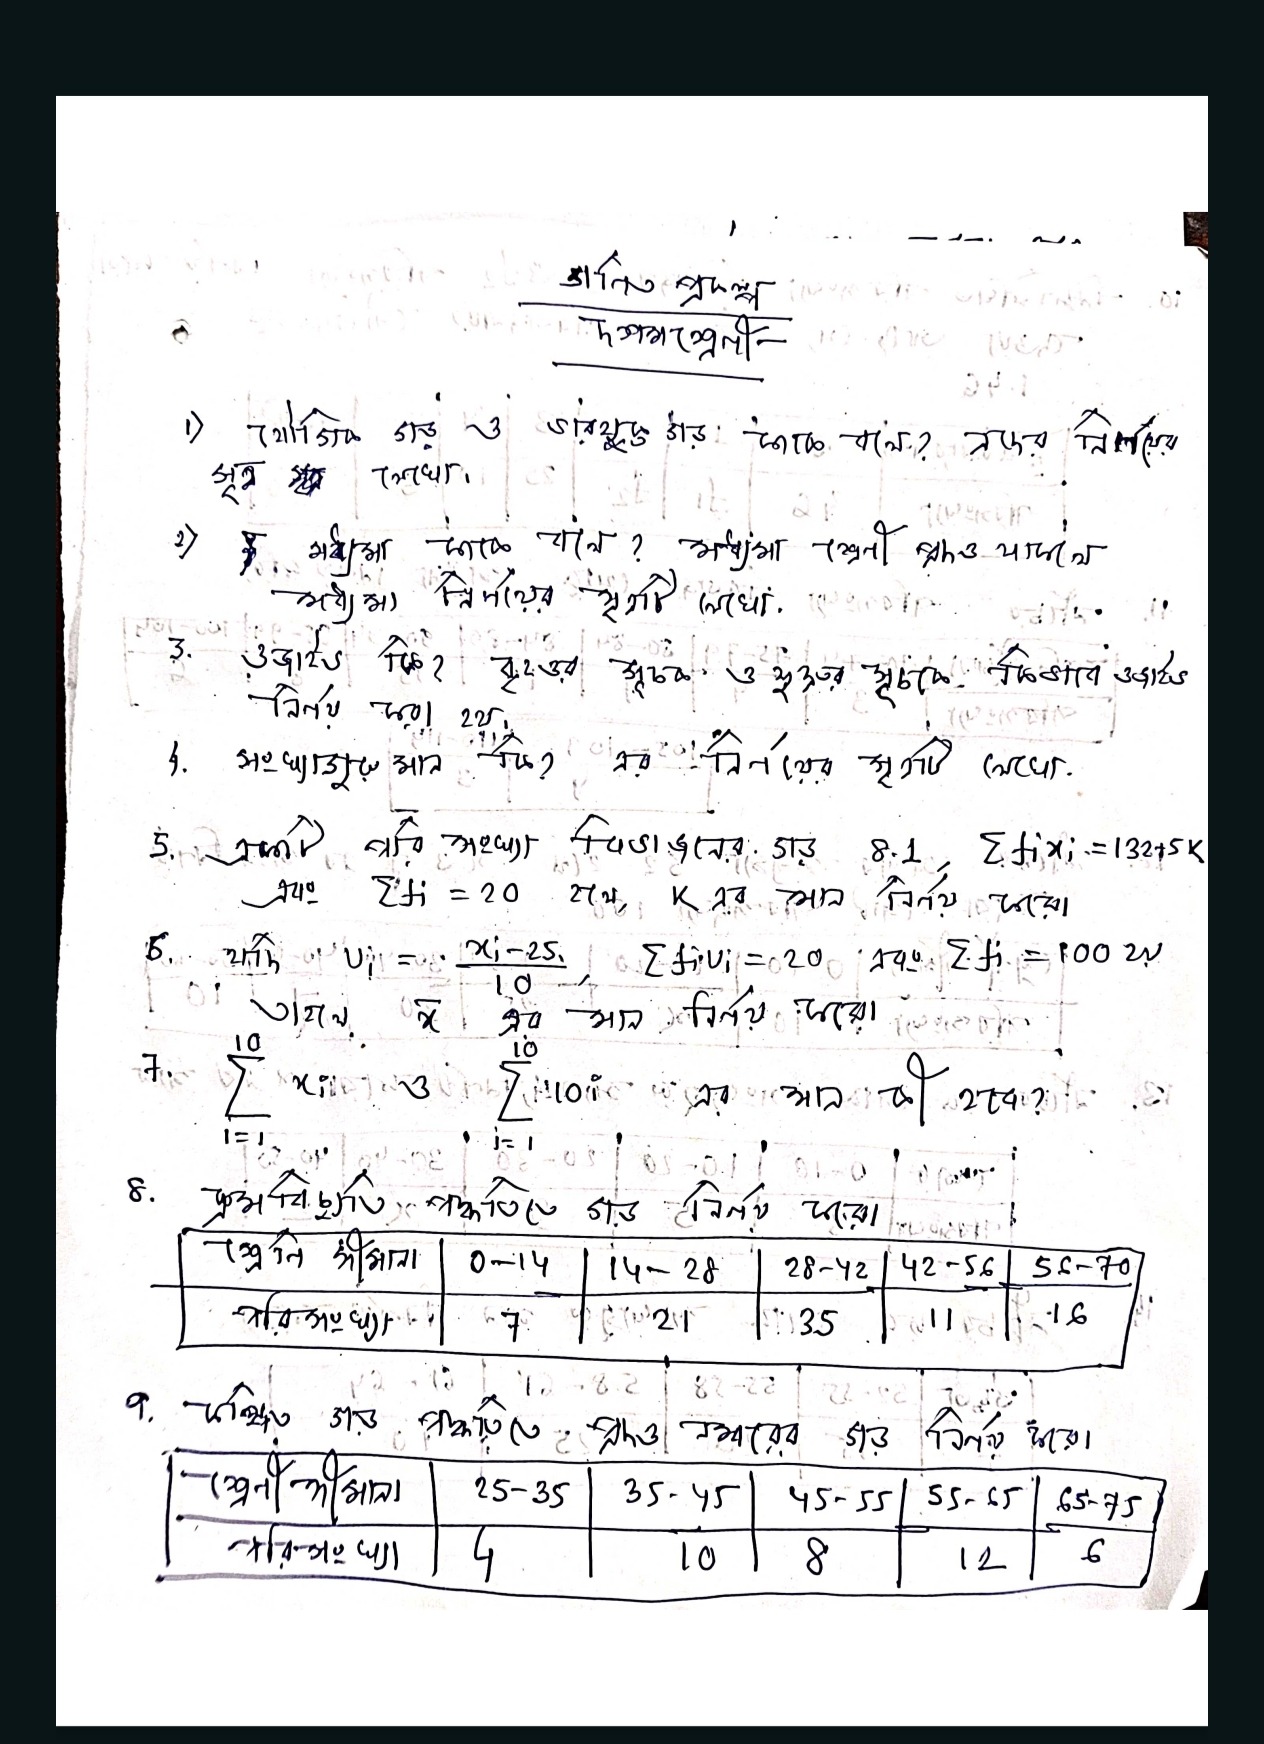 গনিত প্রকল্প
দশমশ্রেনী
1) যৌগিক গড় ও ভারযুক্ত গড় কাকে বলে? এদের নির্ণয়ের
সূত্র লেখো।
2) মধ্যমা কাকে বলে? মধ্যমা শ্রেনী প্রদত্ত থাকলে
মধ্যমা নির্ণয়ের সূত্রটি লেখো.
3. ওজাইভ কি? বৃহত্তর সূচক ও ক্ষুদ্রতর সূচকে কিভাবে ওজাইভ
নির্ণয় করা হয়.
4. সংখ্যাগুরু মান কি? এর নির্ণয়ের সূত্রটি লেখো.
5. একটি পরি সংখ্যা বিভাজনের গড় 8.1, ∑fixi = 132+5K
এবং ∑fi = 20 হলে, K এর মান নির্ণয় করো।
6. যদি ui = xi-25/10, ∑fiui = 20 এবং ∑fi = 100 হয়
তাহলে x̄ এর মান নির্ণয় করো।
7. 10∑i=1 xi ও 10∑i=1 10i এর মান কী হবে?
8. ক্রমবিচ্যুতি পদ্ধতিতে গড় নির্ণয় করো।
শ্রেনি সীমানা 0-14 14-28 28-42 42-56 56-70
পরিসংখ্যা 7 21 35 11 16
9. কল্পিত গড় পদ্ধতিতে প্রদত্ত নম্বরের গড় নির্ণয় করো।
শ্রেনী সীমানা 25-35 35-45 45-55 55-65 65-75
পরিসংখ্যা 4 10 8 12 6